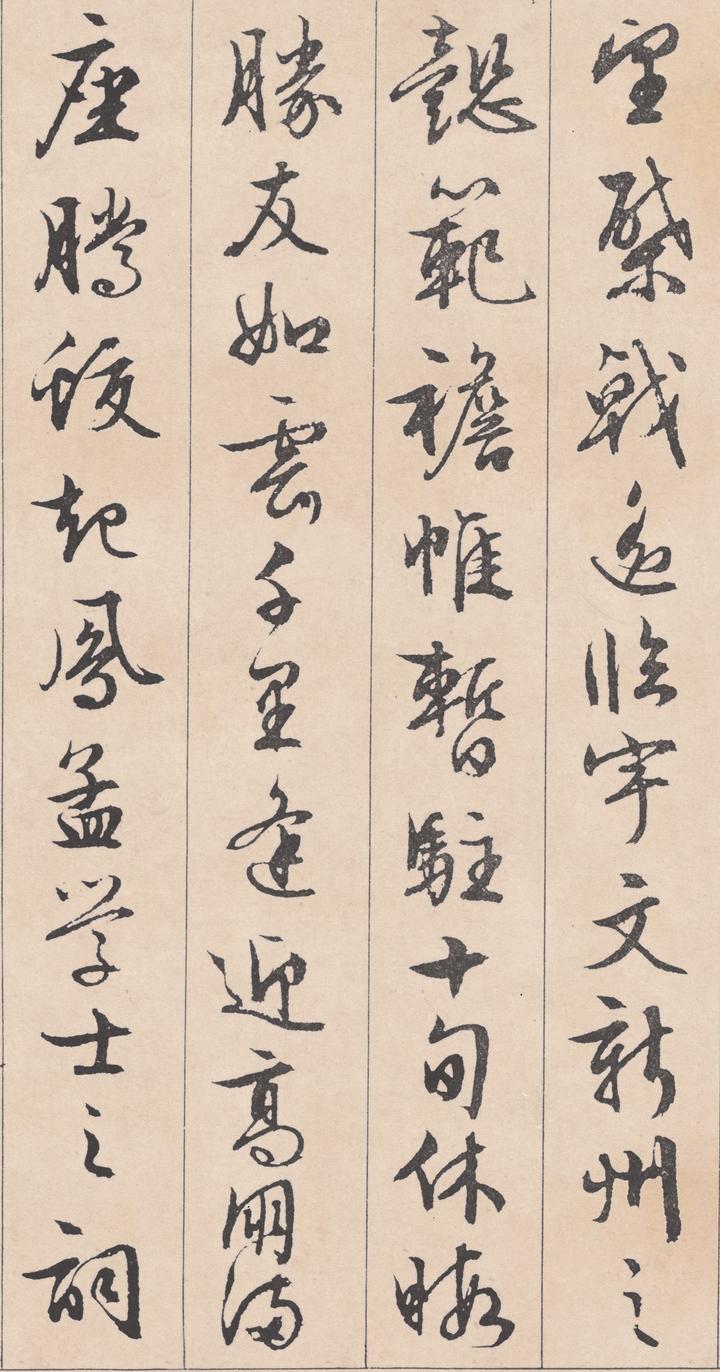 望棨戟遙臨宇文新州之
懿範襜帷暫駐十旬休暇
勝友如雲千里逢迎高朋滿
座騰蛟起鳳孟学士之詞